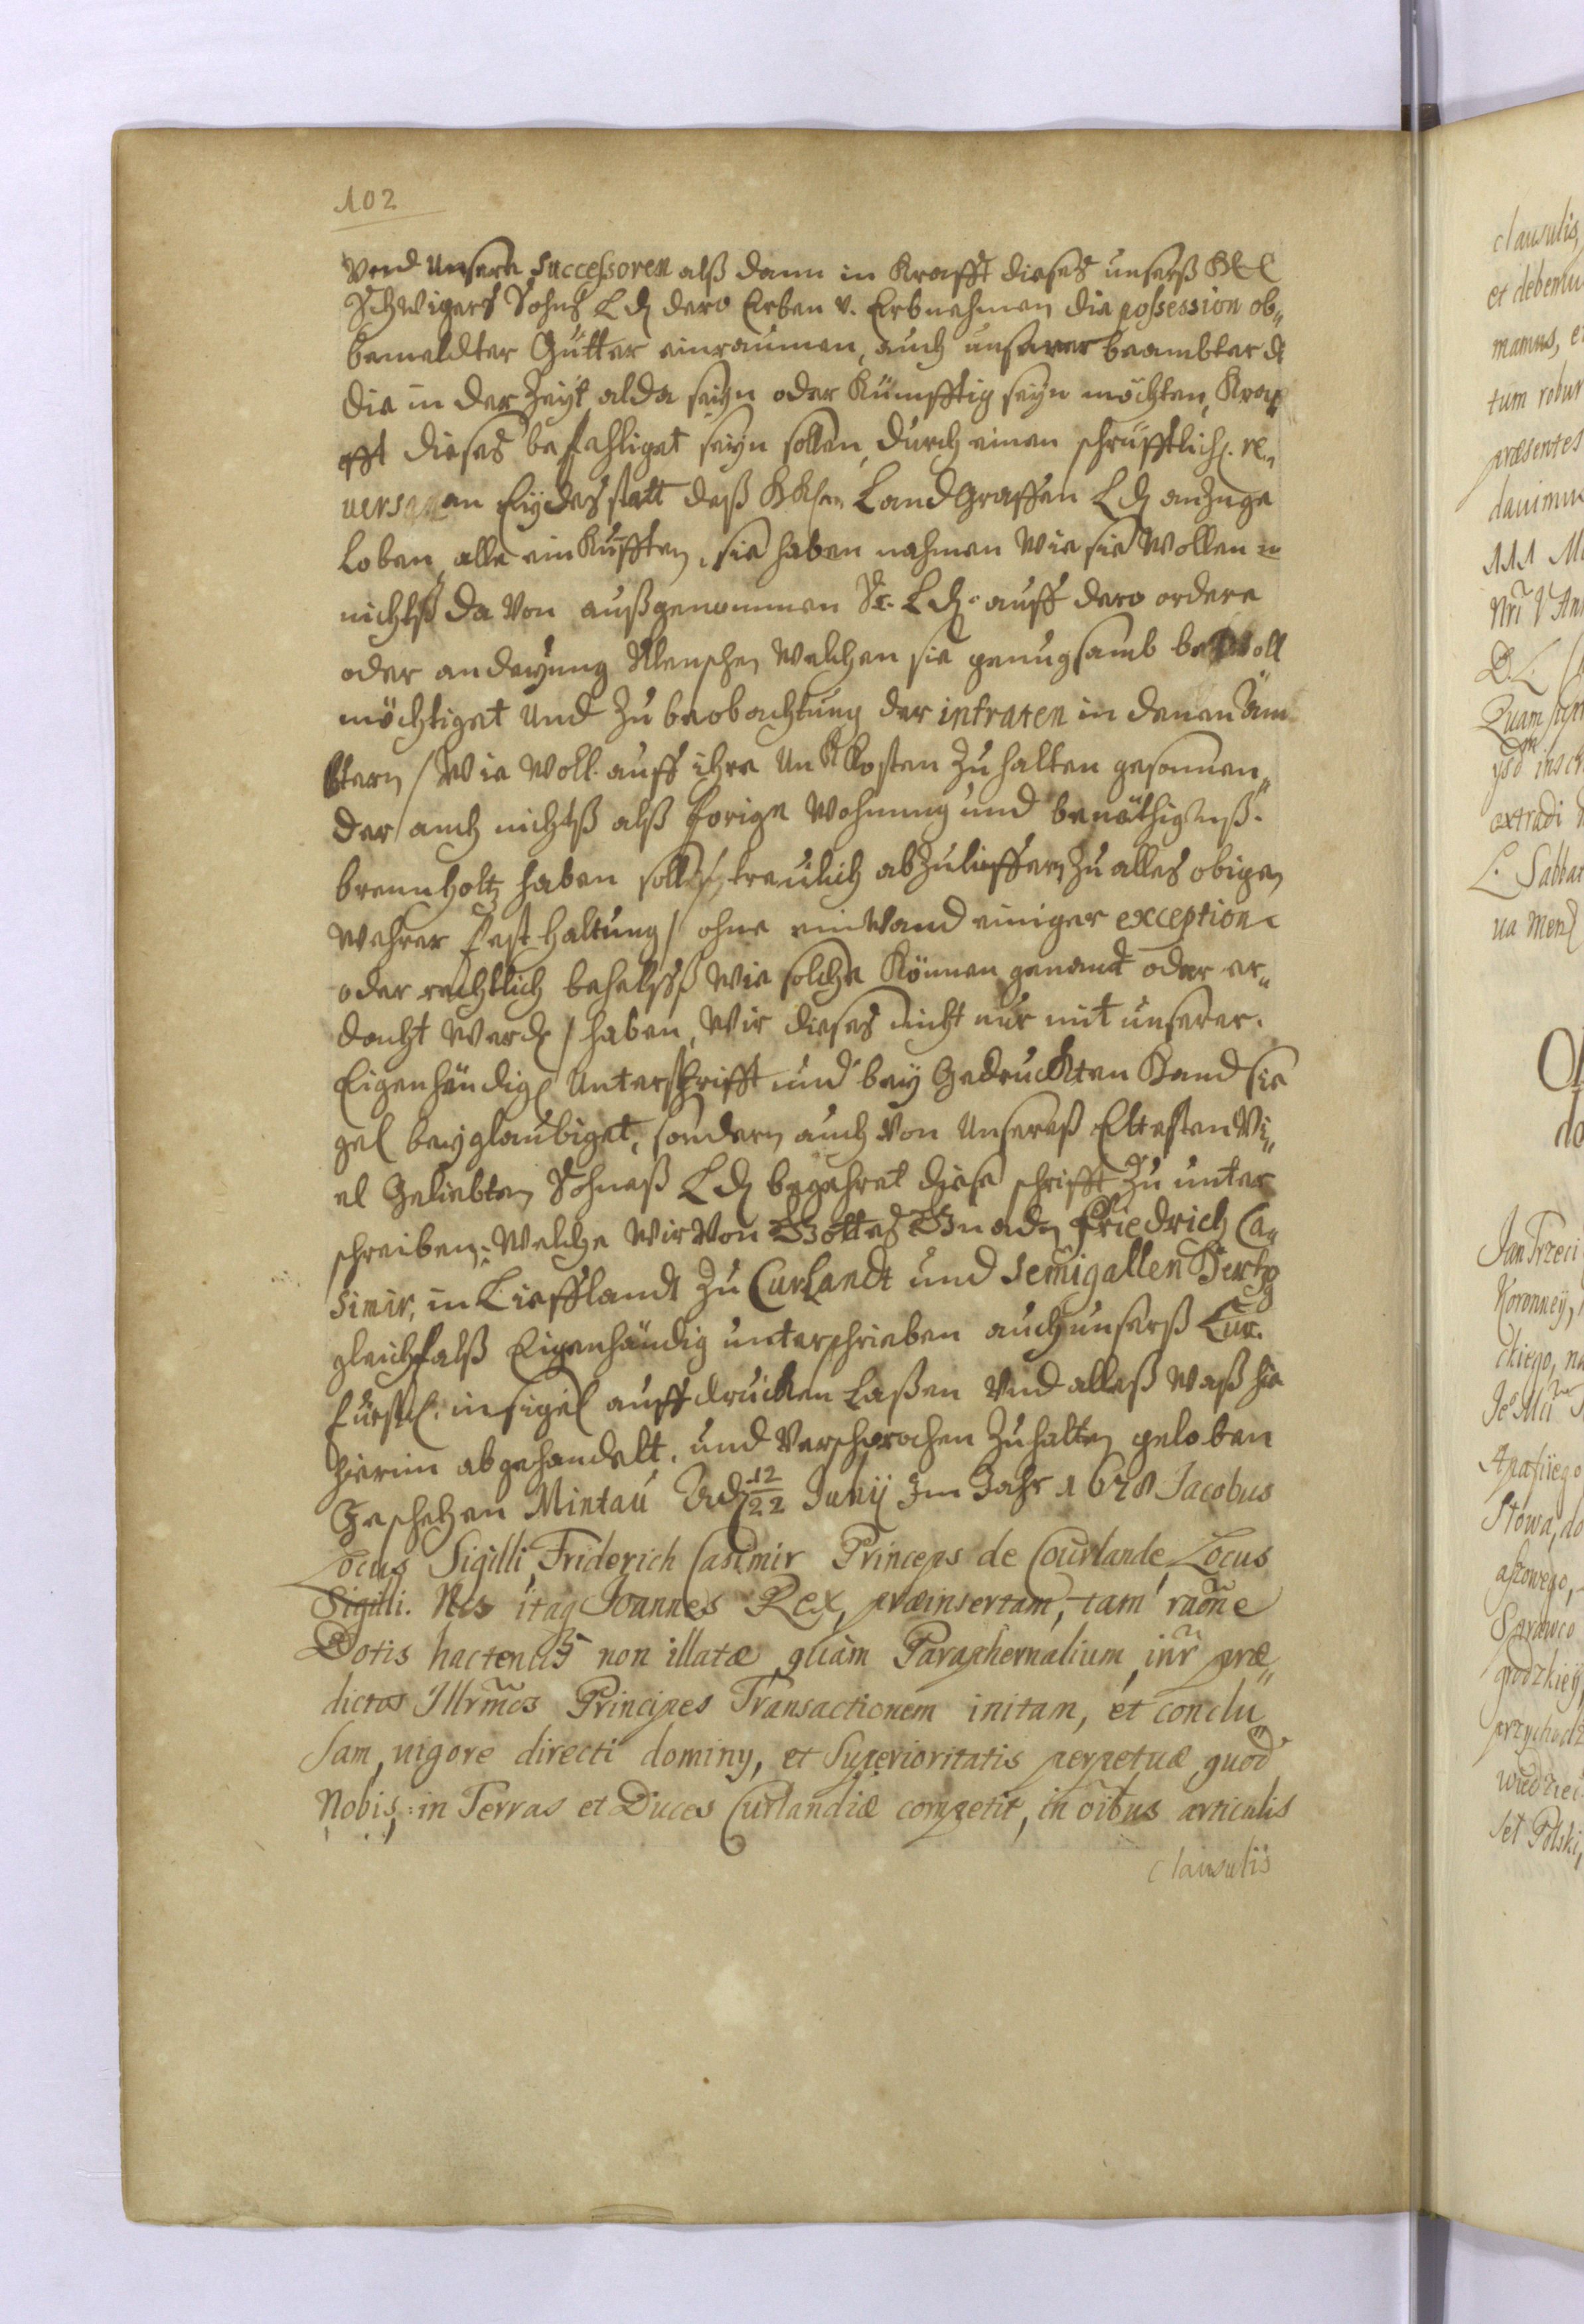 102
Vnd Unsere Successoren alß dann in Krafft dieses unserß
Schwigers Sohns Ld dero Erben v. Erbnehmen die possession ob„
bemeldter Gütter einraumen, auch unserer beambter
die in der Zeyt alda seyn oder Kümfftig seyn möchten, Kra
fft dieses befehliget seyn sollen, durch einen schrüfftlich. re„
versen an Eydes statt deß Land Graffen Ld anzuge
loben, alle ein Küfften, sie haben nahmen Wie sie Wollen
nichtß da Von außgenommen Sr. Ld. auff dero ordere
oder andeyung Menschen Welchen sie genugsamb be Voll
möchtiget Und Zu beobachtung der intraten in denen äm
btern / Wie Woll. auff ihre Un Kosten Zu halten gesonnen„
der / auch nichtß alß forige Wohnung und benöthigtß.
brennholtz haben solle / treulich abZulieffern, Zu alles obigen
Wehrer fest Haltung / ohne einWand einiger exception
oder rechtlich behelffß Wie solche Können genandt oder er„
dacht Werd / haben, Wir dieses nicht nur mit unserer.
Eigenhändig Unterschrifft und bey Gedruckten Hand sie
gel beyglaubiget, sondern auch Von Unserß Eltesten Vi„
el Geliebten Sohneß Ld begehret diese schrifft Zu unter
schreiben: Welche Wir Von Gottes Gnaden Friedrich Ca„
simir, in Liefflandt Zu Curlandt und Semigallen Hertzg
gleichfalß Eigenhändig unterschrieben auch unserß
fürstl. insigel auff drücken Laßen Und alleß Waß hie
hierin abgehandelt. und Versprochen Zuhalten geloben
Geschehen Mintau 12/22 Junij Im Jahr 1678 Jacobus
Locus Sigilli, Friderich Casimir Princeps de Courlande, Locus
Sigilli. Nos itaq Joannes Rex, præinsertam, tam raone
Dotis hactenus non illatæ, quàm Paraphernalium, intr præ„
dictos Illrmos Principes Transactionem initam, et conclu
sam, vigore directi dominy, et Superioritatis perpetuæ, quod
Nobis, in Terras et Duces Curlandiæ competit, in oibus articulis
clausulis
clausulis,
et debemu
mamus, e
tum robur
præsentes
Nri
Quam
extradi
L. Sabba
Jan Trzeci
Koronney,
ckiego, na
Apafiiego
Słowa, do
przychodz
wiedziec